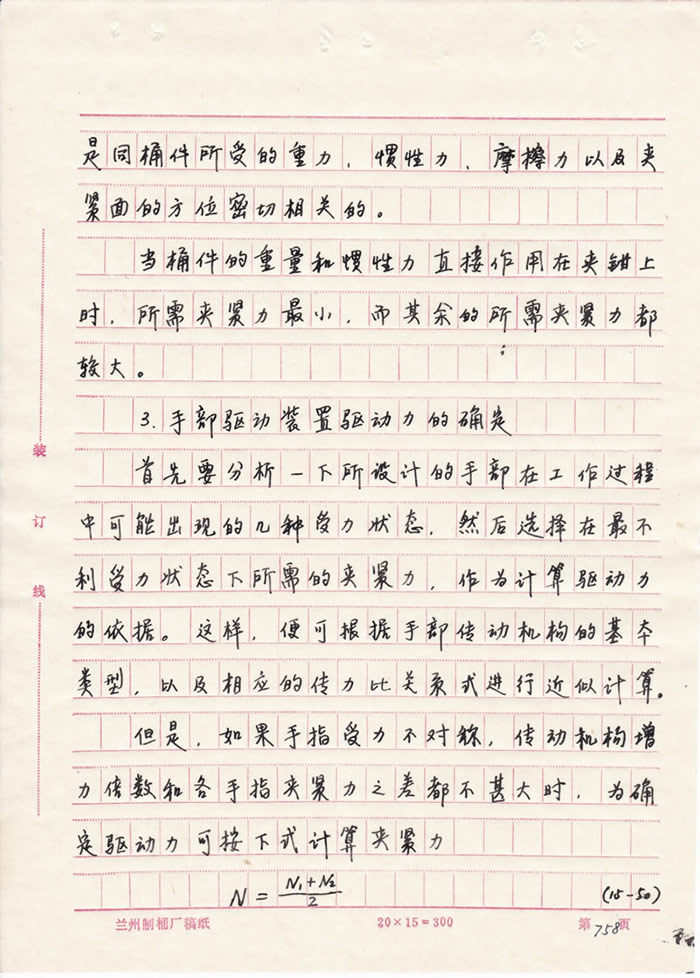 是同桶件所受的重力、惯性力、摩擦力以及夹
紧面的方位密切相关的。
当桶件的重量和惯性力直接作用在夹钳上
时，所需夹紧力最小，而其余的所需夹紧力都
较大。
3.手部驱动装置驱动力的确定
首先要分析一下所设计的手部在工作过程
中可能出现的几种受力状态，然后选择在最不
利受力状态下所需的夹紧力，作为计算驱动力
的依据。这样，便可根据手部传动机构的基本
类型，以及相应的传力比关系式进行近似计算。
但是，如果手指受力不对称，传动机构增
力倍数和各手指夹紧力之差都不甚大时，为确
定驱动力可按下式计算夹紧力
N = (N₁+N₂)/2 (15-50)
装订线
兰州制桶厂稿纸 20×15=300 第758页